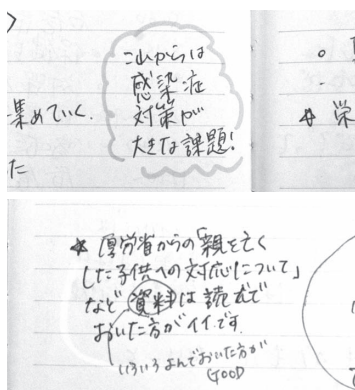 これからは
感染症
対策が
大きな課題!
集めていく.
た
☆ 栄
☆ 厚労省からの「親を亡く
した子供への対応について」
など 資料は読んで
おいた方がイイです.
いろいろよんでおいた方が
GOOD